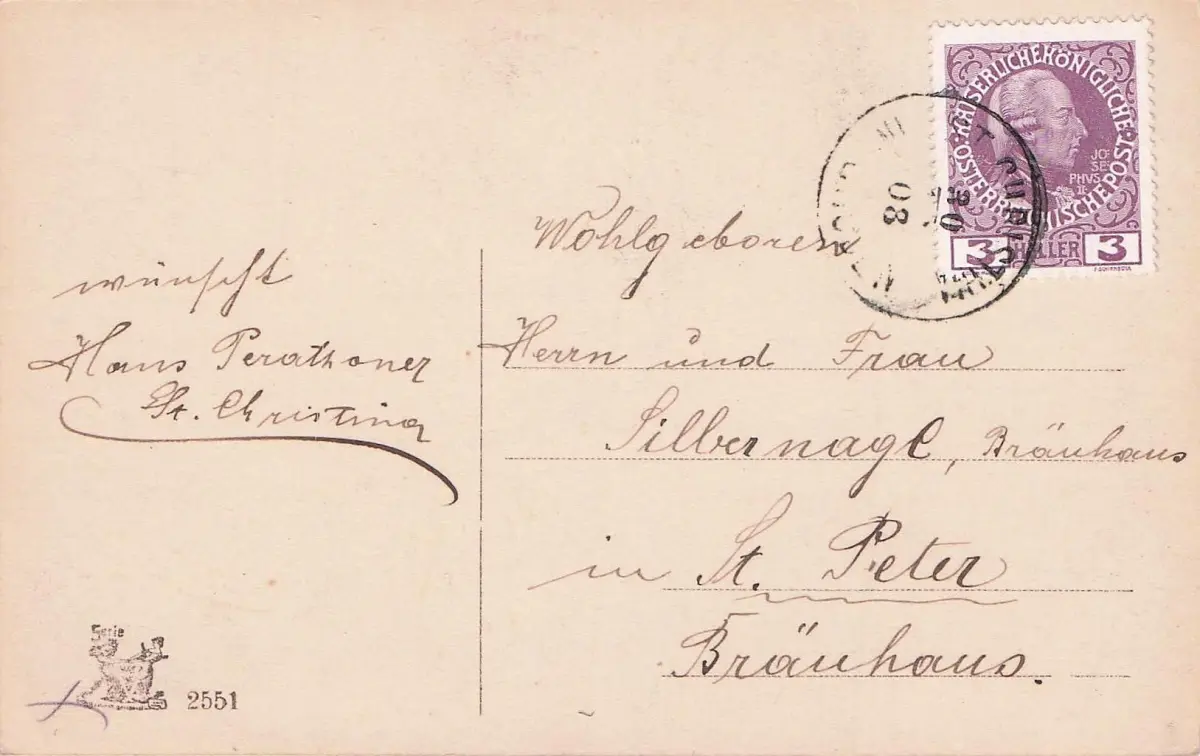 wünscht
Hans Perathoner
St. Christina
Wohlgeboren
Herrn und Frau
Silbernagl, Bräuhaus
in St. Peter
Bräuhaus.
KAISERLICHE KÖNIGLICHE
ÖSTERREICHISCHE POST
JO
SE
PHVS
II
3 HELLER 3
08
Serie
2551